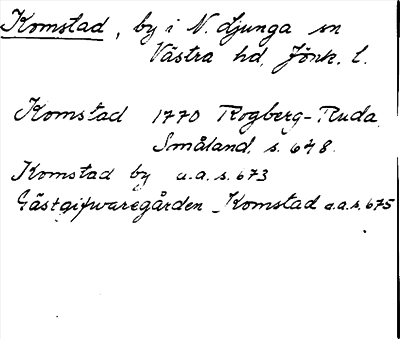 Komstad, by i N. Ljunga sn
Västra hd, Jönk. l.
Komstad 1770 Rogberg-Ruda
Småland, s. 648.
Komstad by a.a. s. 673
Gästgifwaregården Komstad a.a. s. 675